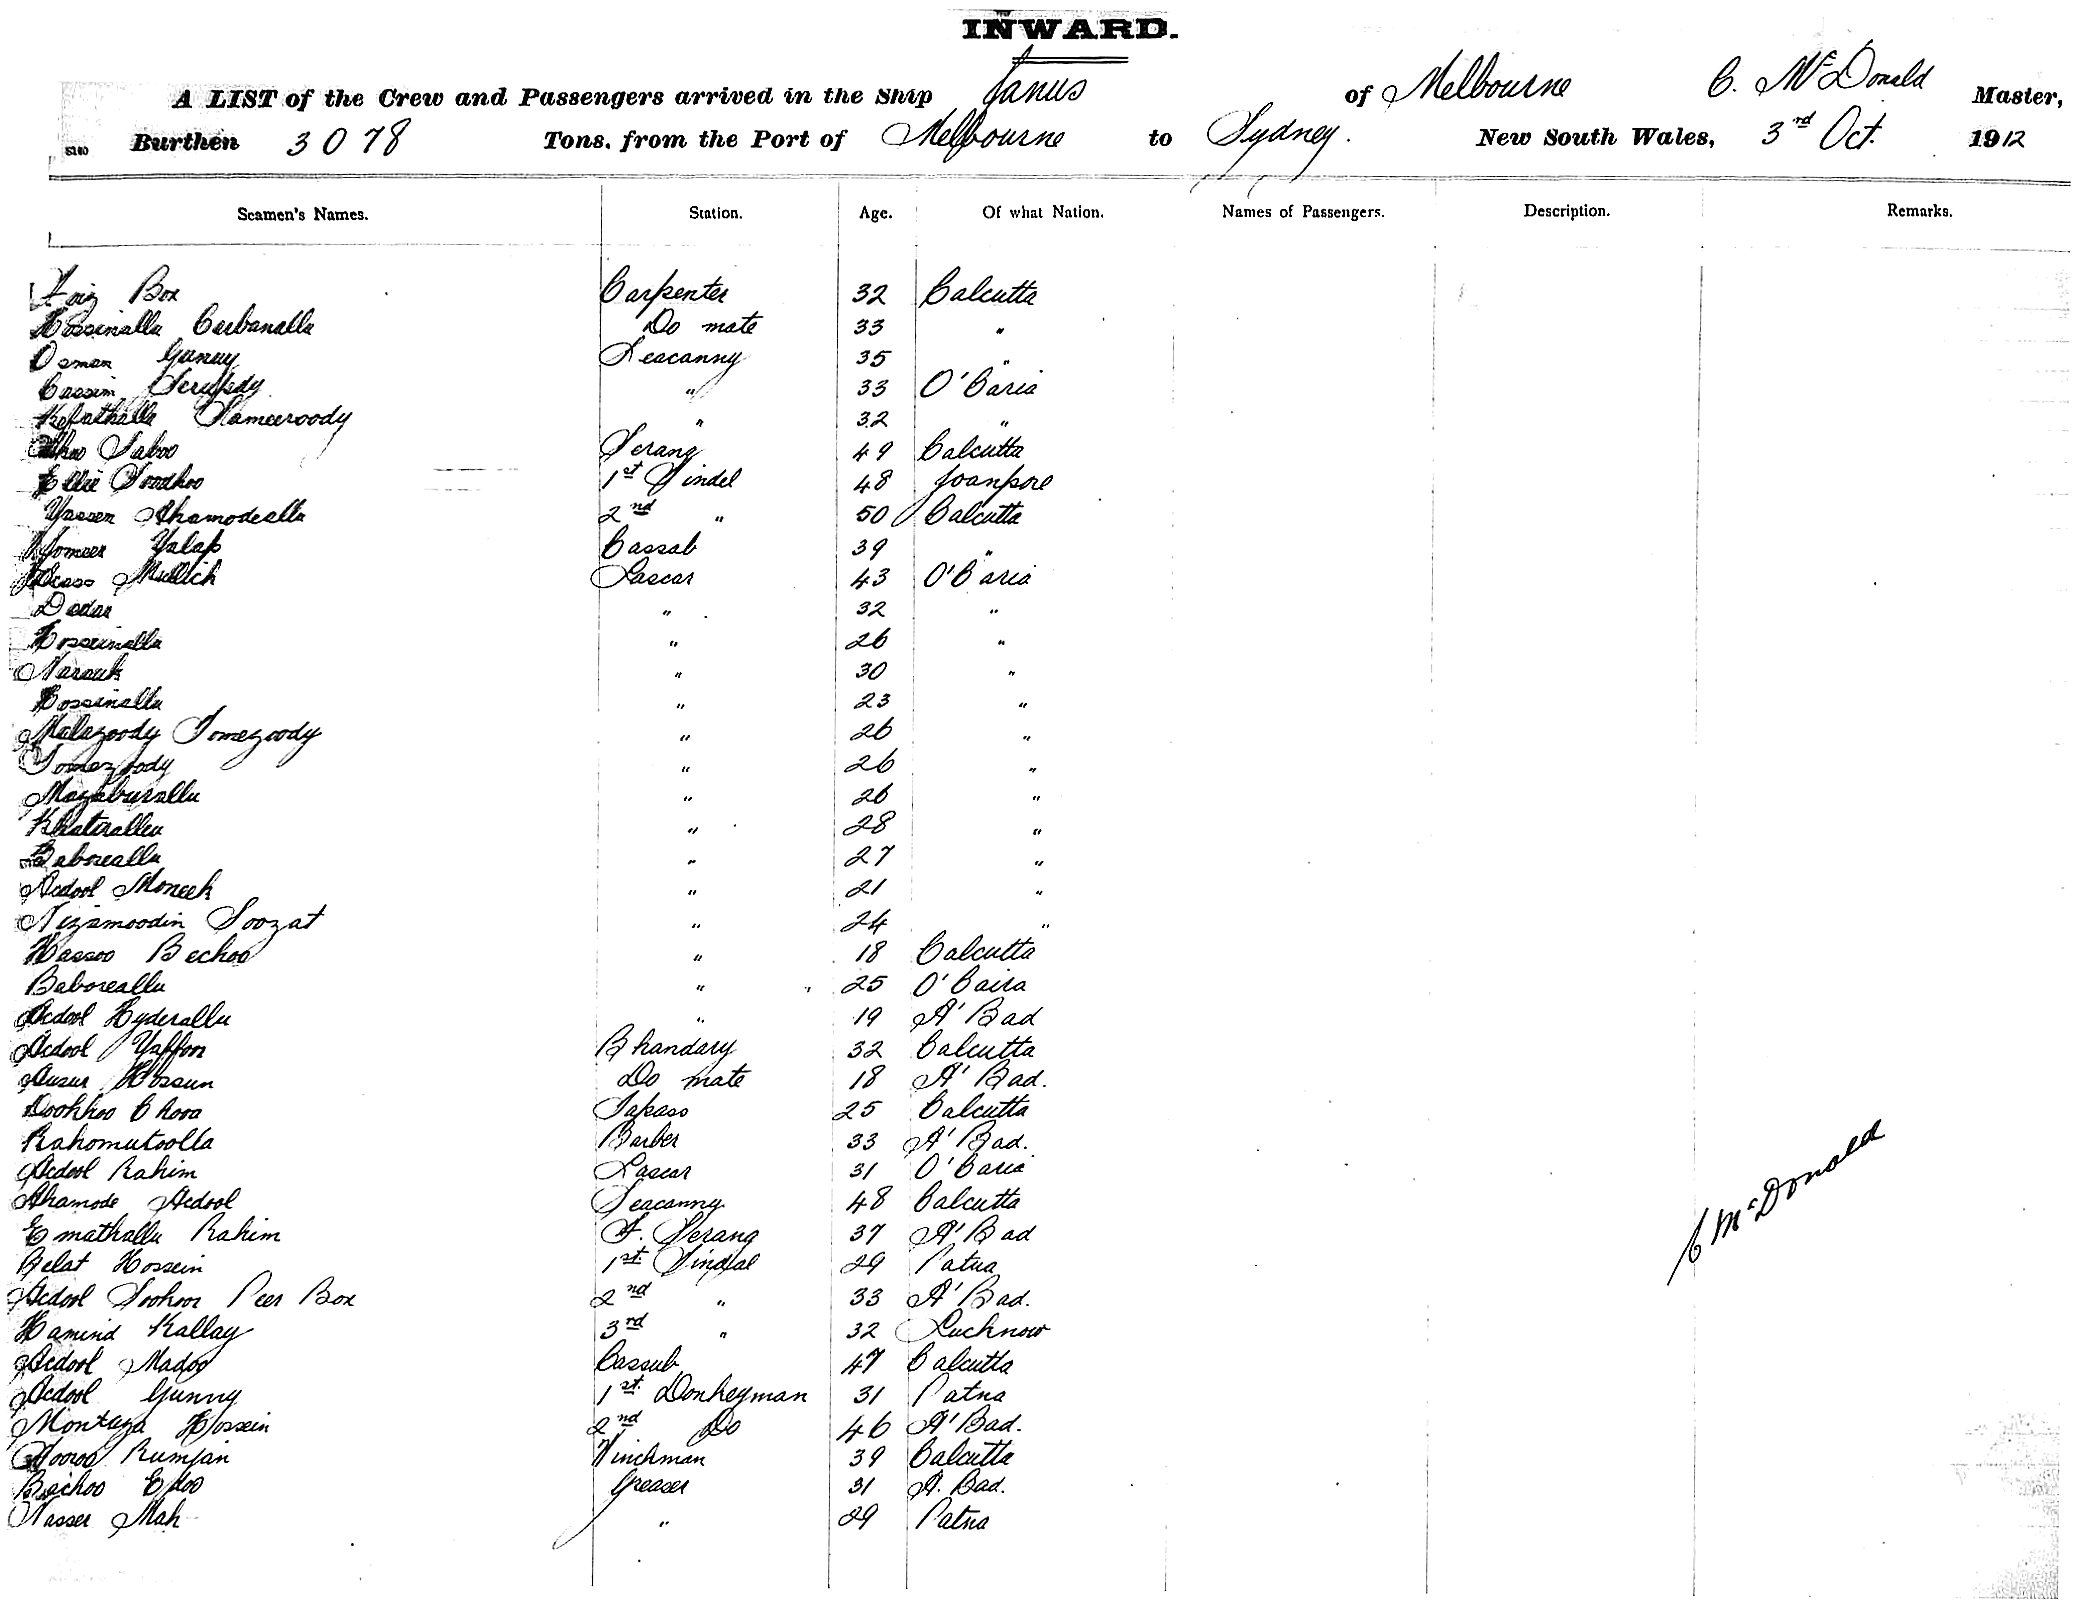 INWARD.
A LIST of the Crew and Passengers arrived in the Ship Janus of Melbourne C. McDonald Master,
Burthen 3078 Tons. from the Port of Melbourne to Sydney. New South Wales, 3rd Oct. 1912
Seamen's Names. Station. Age. Of what Nation. Names of Passengers. Description. Remarks.
Box Carpenter 32 Calcutta
Hossinalla Curbanalla Do mate 33 "
Osman Ganny Seacanny 35 "
Cassim " 33 O'Baria
Kefathalla Kameeroody " 32 "
Saboo Serang 49 Calcutta
Ellie Soodhoo 1st Tindel 48 Joanpore
Yassen Ahamodealla 2nd " 50 Calcutta
Yalap Cassab 39 "
Mullich Lascar 43 O'Baria
Dedar " 32 "
Hosseinalla " 26 "
" 30 "
Hossinalla " 23 "
Malazoody Tomezoody " 26 "
Tomezoody " 26 "
Mozaburalla " 26 "
Khatiralla " 28 "
Baborealla " 27 "
Acdool Moneek " 21 "
Nizamoodin Soozat " 24 "
Hassoo Bechoo " 18 Calcutta
Baborealla " 25 O'Baira
Acdool Hyderalla " 19 A'Bad
Acdool Yaffoor Bhandary 32 Calcutta
Hossun Do mate 18 A'Bad.
Dookhoo Chora Topass 25 Calcutta
Rahomutoolla Barber 33 A'Bad.
Acdool Rahim Lascar 31 O'Baria
Ahamode Acdool Seacanny 48 Calcutta
Emathalla Rahim F. Serang 37 A'Bad
Belat Hossein 1st Tindal 29 Patna
Acdool Soohoor Peer Box 2nd " 33 A'Bad.
Hamind Kallay 3rd " 32 Lucknow
Acdool Madoo Cassub 47 Calcutta
Acdool Gunny 1st Donkeyman 31 Patna
Montaza Hossein 2nd Do 46 A'Bad.
Rumjan Winchman 39 Calcutta
Bechoo Edoo Greaser 31 A. Bad.
Nasser Mah " 29 Patna
C McDonald